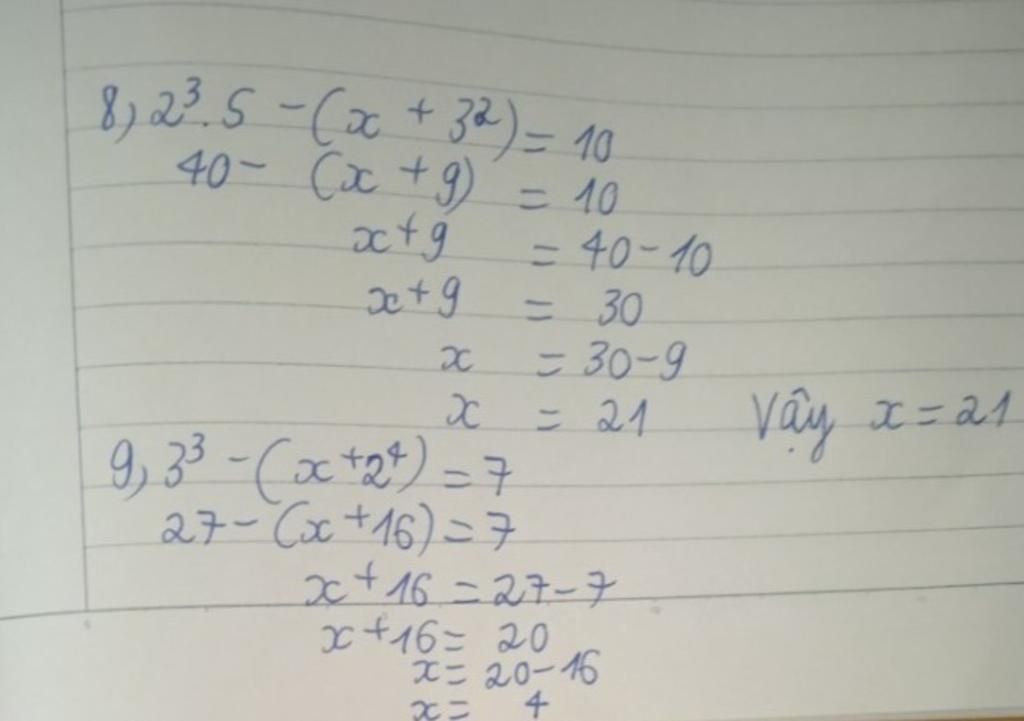 8, 2³.5 - (x + 3²) = 10
40 - (x + 9) = 10
x + 9 = 40 - 10
x + 9 = 30
x = 30 - 9
x = 21 Vậy x = 21
9, 3³ - (x + 2⁴) = 7
27 - (x + 16) = 7
x + 16 = 27 - 7
x + 16 = 20
x = 20 - 16
x = 4